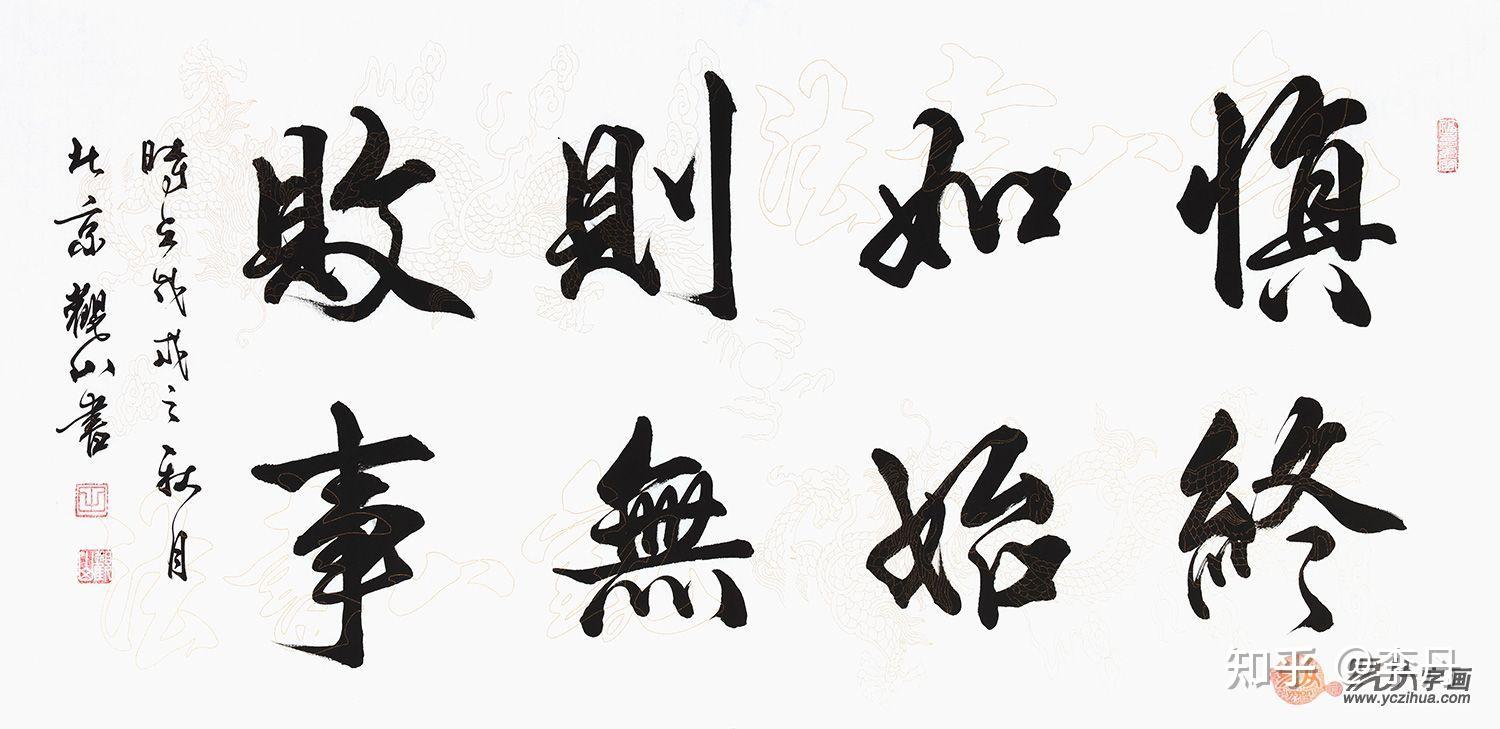 慎終
如始
則無
敗事
時在戊戌之秋月
北京觀山書
知乎 @李丹
易从字画
www.yczihua.com